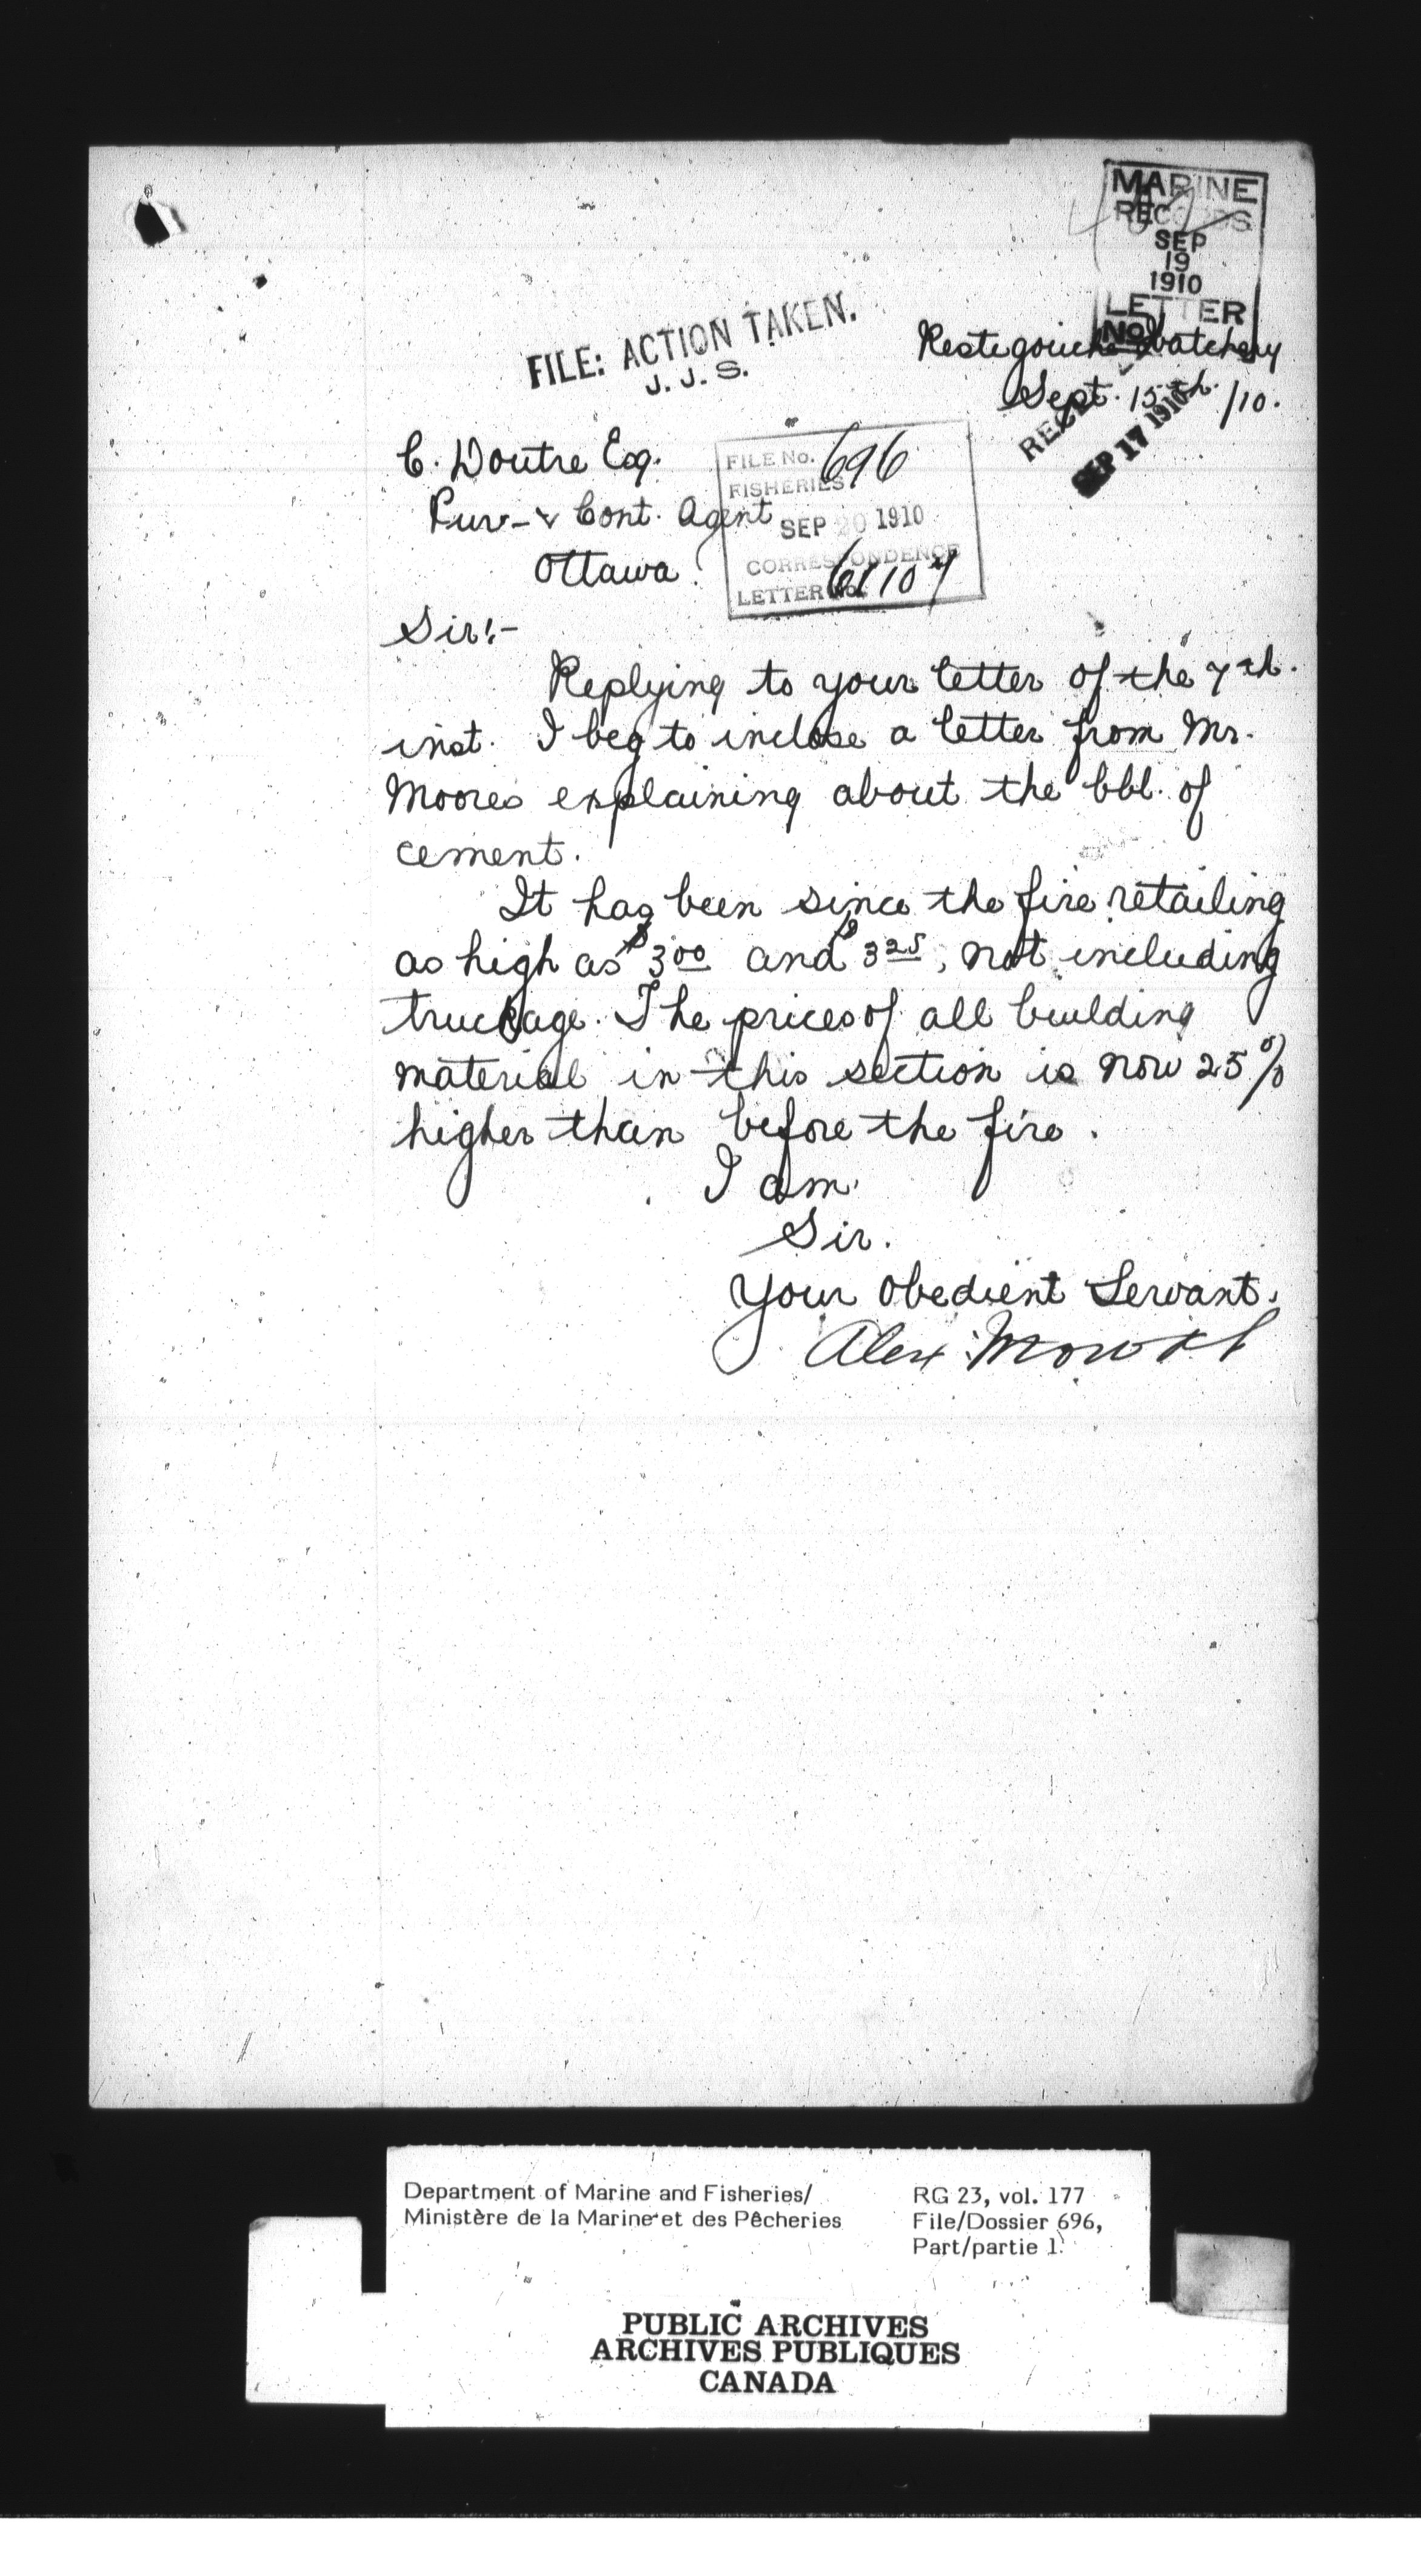 MARINE
RECORDS
SEP
19
1910
LETTER
No.
FILE: ACTION TAKEN.
J. J. S.
Restigouche Hatchery
Sept. 15th. /10.
SEP 17 1910
C. Doutre Esq.
Pur- & Cont. Agent
Ottawa.
FILE No. 696
FISHERIES
SEP 20 1910
CORRESPONDENCE
LETTER No.
Sir:-
Replying to your letter of the 7th.
inst. I beg to inclose a letter from Mr.
Moores explaining about the bbl. of
cement.
It has been since the fire retailing
as high as $3 00 and $3 25, not including
truckage. The prices of all building
material in this section is now 25%
higher than before the fire.
I am.
Sir.
Your Obedient Servant.
Alex Mowat
Department of Marine and Fisheries/
Ministère de la Marine et des Pêcheries
RG 23, vol. 177
File/Dossier 696,
Part/partie 1.
PUBLIC ARCHIVES
ARCHIVES PUBLIQUES
CANADA